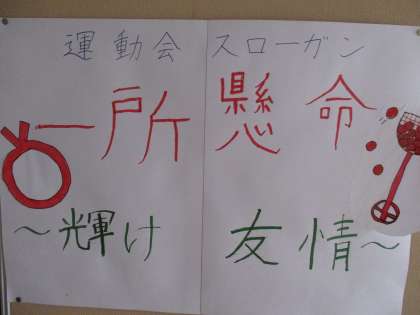 運動会 スローガン
一所懸命
～輝け 友情～